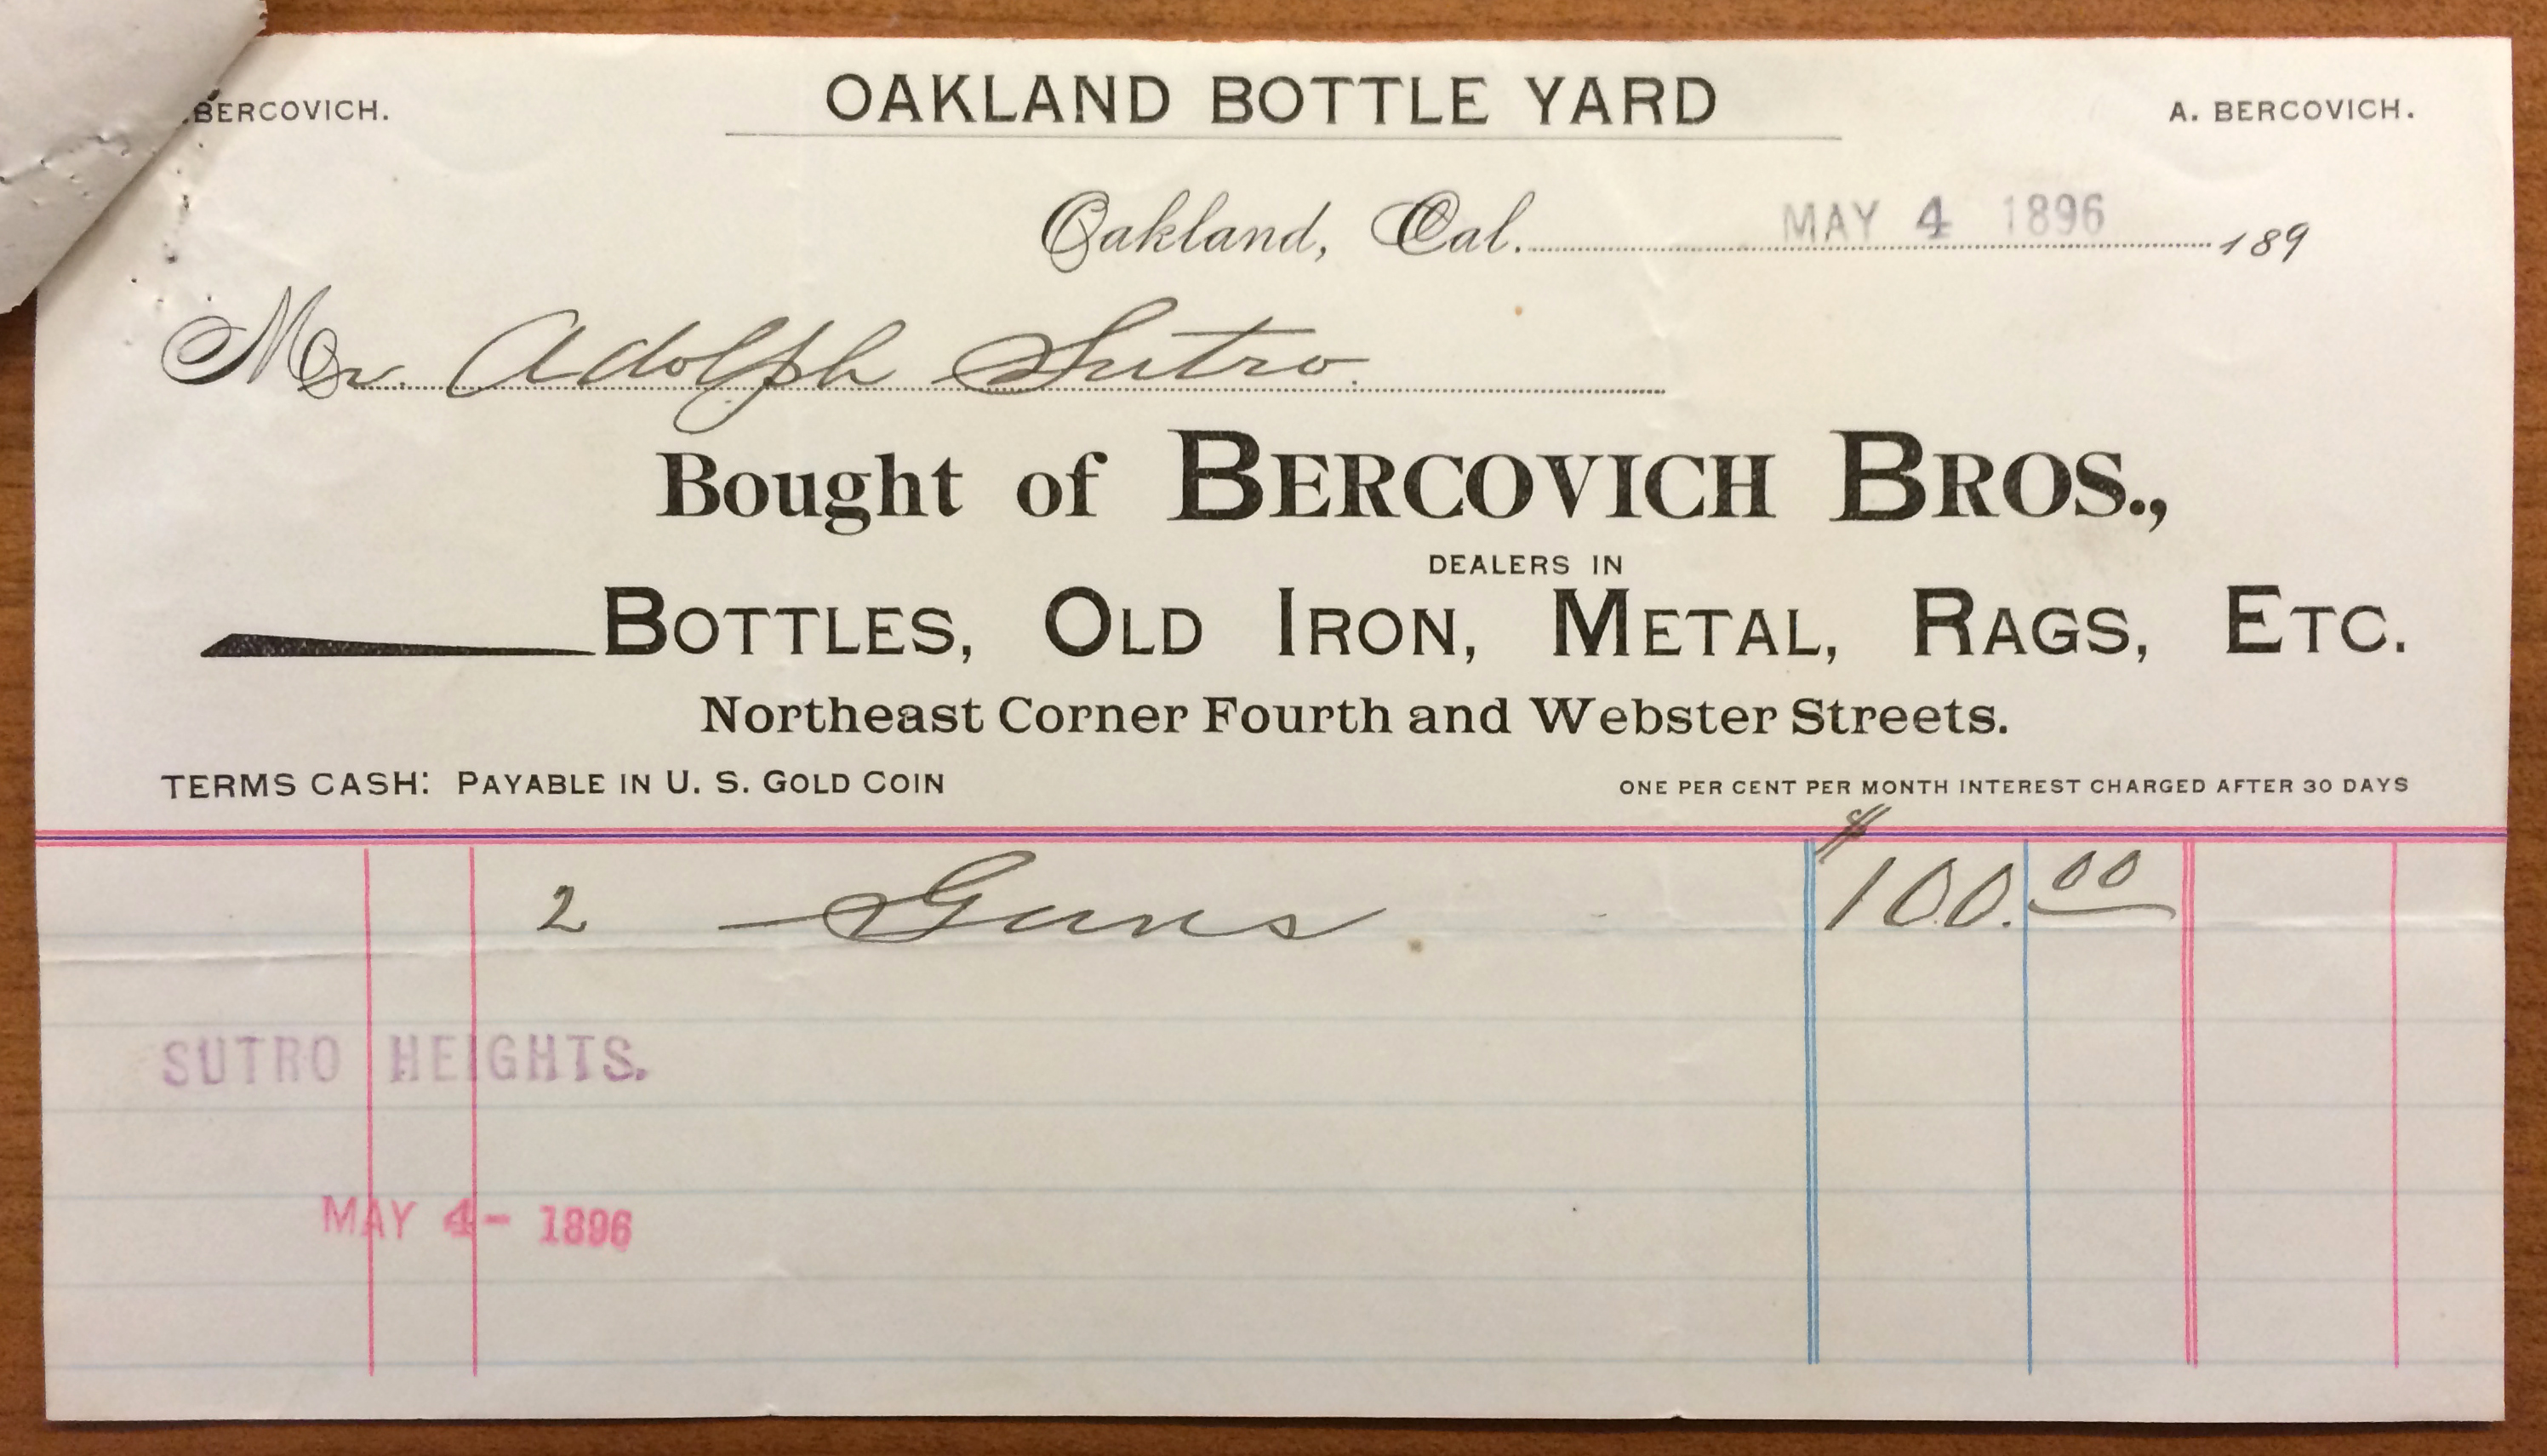 .BERCOVICH. OAKLAND BOTTLE YARD A. BERCOVICH.
Oakland, Cal. MAY 4 1896 189
Mr. Adolph Sutro.
Bought of BERCOVICH BROS.,
DEALERS IN
BOTTLES, OLD IRON, METAL, RAGS, ETC.
Northeast Corner Fourth and Webster Streets.
TERMS CASH: PAYABLE IN U. S. GOLD COIN ONE PER CENT PER MONTH INTEREST CHARGED AFTER 30 DAYS
2 Guns $100.00
SUTRO HEIGHTS.
MAY 4 - 1896